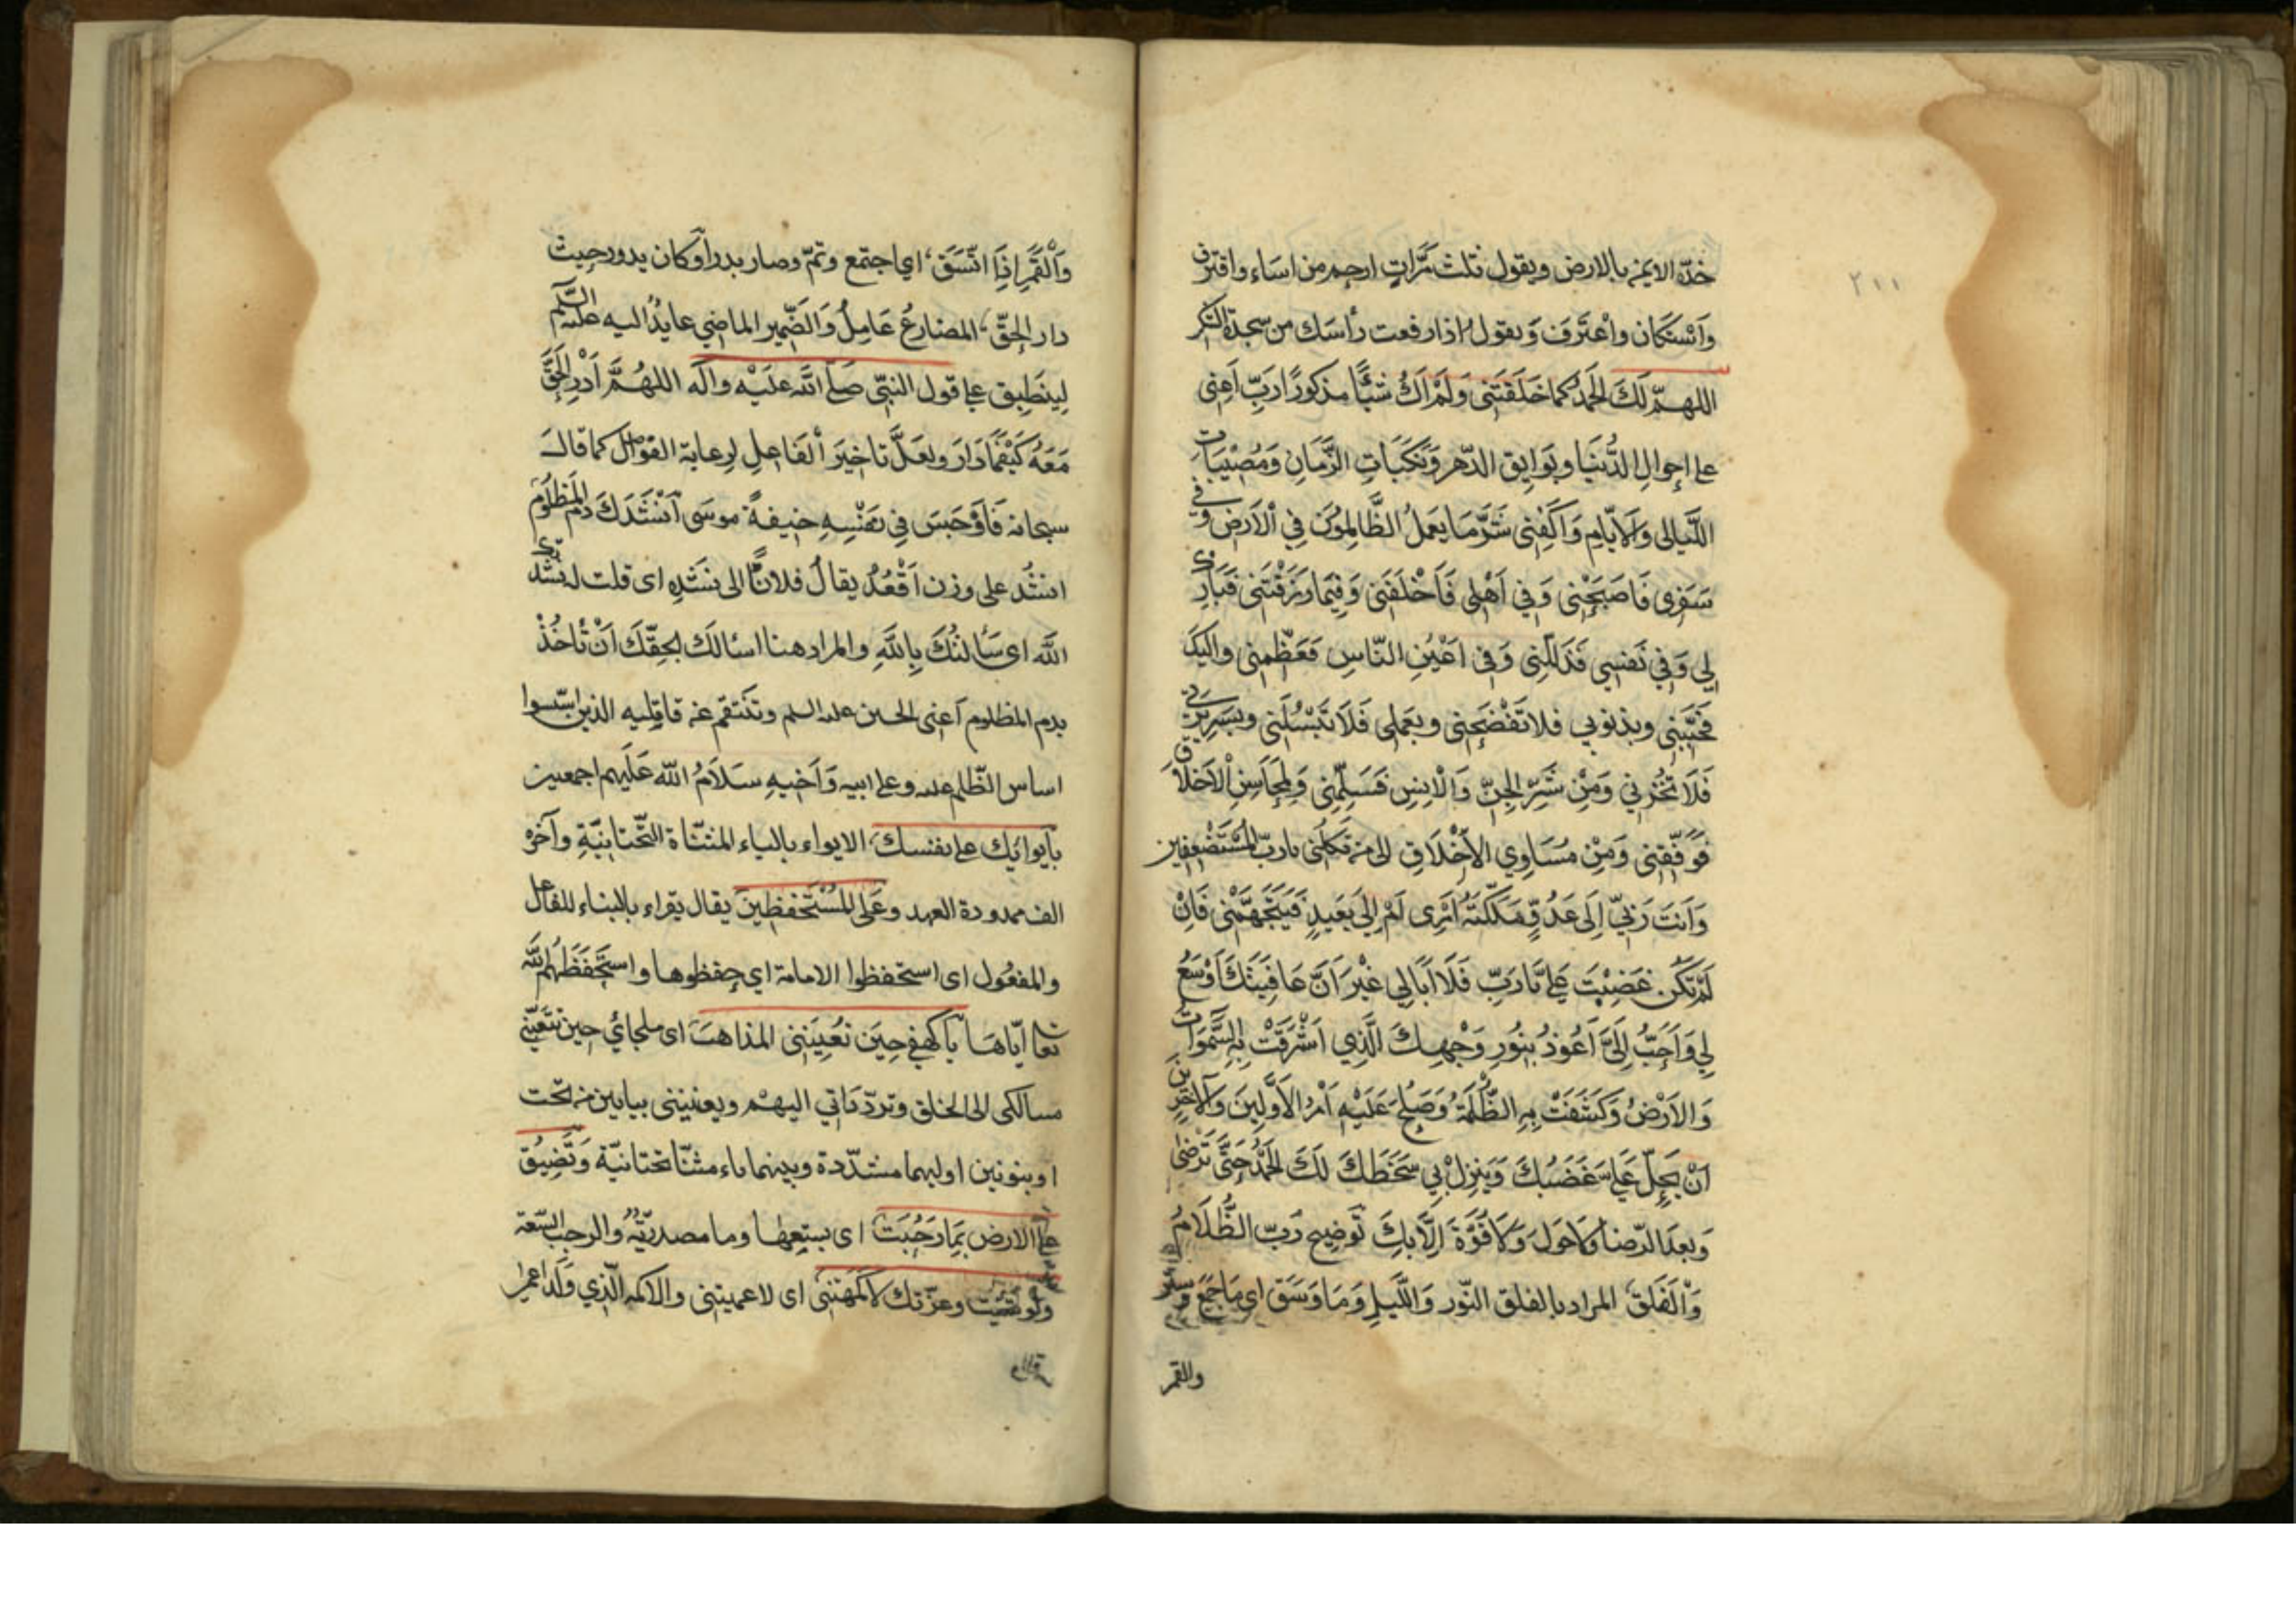 ٢١١
خدّه الايمن بالارض ويقول ثلث مَرّاتٍ ارحم من اساء واقترف
وَاسْتكَانَ واعْتَرَفَ وَيقولُ اذا رفعت رأسَك من سجدة الشكر
اللهمّ لَكَ الحَمْدُ كما خَلَقتَني وَلَمْ اَكُ شَيْئًا مذكورًا رَبِّ اَعِنّي
على اهوالِ الدُّنيَا وبَوَايِق الدّهرِ وَنَكَبَاتِ الزَّمَانِ وَمُصيبَات
اللَّيالى وَالاَيّامِ وَاكْفِني شَرَّمَا يَعمَلُ الظَّالِمُونَ فِي الْاَرضِ وَفي
سَفَرى فَاصحَبْنِى وَفي اَهْلِى فَاخْلُفْنى وَفِيَما رَزَقْتَنى فَبَارِك
لِي وَفي نَفسِي فَذَلِّلْنِى وَفى اَعْيُنِ النّاسِ فَعَظِّمنِى واِلَيْكَ
فَحَبِّبْنِى وبذنوبي فلا تَفْضَحْنِى وبعَملِى فَلا تَبْسُلْنِى وبسَرِيرَتي
فَلا تُخْزِني وَمِنْ شَرِّ الجِنِّ وَالْاِنسِ فَسَلِّمْنِى وَلِمحَاسِنِ الْاَخلاق
فَوَفّقِنِى وَمِنْ مَسَاوِي الْاَخْلاقِ الى من تَكِلُنى يا ربّ المُسْتَضْعفين
وَاَنْتَ رَبّي اِلَى عَدُوٍّ مَلَّكْتَهُ اَمْرى اَمْ اِلى بَعَيدٍ فَيَتَجَهَّمَنِى فَاِنْ
لَمْ تَكُن غَضِبْتَ عَلَيَّ يَا رَبِّ فَلَا اُبَالِي غَيْرَ اَنَّ عَافِيَتَكَ اَوْسَعُ
لِي وَاَحَبُّ اِلَيَّ اَعُوذُ بِنُورِ وَجْهِكَ الَّذِي اَشْرَقَتْ بِهِ السَّموَات
وَالاَرْضُ وَكَشَفَتْ بِهِ الظُّلْمَةُ وَصَلُحَ عَلَيْهِ اَمْرُ الاَوَّلِينَ وَالآخِرِين
اَنْ يَحِلَّ عَلَيَّ غَضَبُكَ وَيَنزِلْ بِي سَخَطُكَ لَكَ الحَمْدُ حَتَّى تَرْضَى
وَبعدَ الرّضا وَلا حَولَ وَلَا قُوَّةَ اِلَّا بِكَ تَوضِيح رَبّ الظَّلَامُ
وَالْفَلَقِ المراد بالفلق النّور وَاللَّيلِ وَمَا وَسَقَ اى مَا جَمَعَ
والقمر
وَالْقَمَرِ اِذَا اتَّسَقَ اي اجتمع وتمّ وصار بدرا وكان يدور حيث
دار الحقّ المضارعُ عَامِلٌ وَالضّمير الماضي عايدٌ اليه عليه السَّلم
لِينطَبِق على قول النبّي صَلّى اللّه عَليْه واله اللهُمَّ اَدْرِ الحَقَّ
مَعَهُ كَيْفَمَا دَارَ ولعَلَّ تاخيرَ الفَاعلِ لِرعاية الفواصل كما قالَ
سبحانه فَاَوْجَسَ فِي نَفْسِهِ خيفةً موسَى اَنْشُدُكَ دَمَ المَظلُومَ
انشُد على وزن اَقْعُدُ يقالُ فلانًا الى نشَدِه اى قلت له نشد
اللّه اى سَألتُكَ بِاللّهِ والمراد هنا اسئالكَ بحقّكَ اَنْ تَاخُذْ
بدم المظلوم اَعنى الحسين عليه السلم وتنتقم من قاتليه الذين اسّسوا
اساس الظّلم عليه وعلى ابيه وَاَخيهِ سَلامُ اللّه عَلَيهم اجمعين
بأيوائِك على نفسك الايواء بالياء المثنّاة التّحتانيّة وآخره
الف ممدودة العهد وعَلَى المُسْتَحفظِينَ يقال يقراء بالبناء للفاعل
والمفعُول اى استحفظوا الامامة اي حِفظوها واستَحْفَظَهُم اللّه
تعالى ايّاهَا يا كهفِي حِيَن تُعِيَينِى المذاهبَ اى ملجائي حين تتعبّنى
مسالكى الى الخلق وتردّدَاتي اليهْم ويعيينى بيايين من تحت
او بنونين اوليهما مشدّدة وبينهما ياء مثنّا تحتانيّة وَتضِيقَ
عليَّ الارض بِمَا رَحُبَتْ اى بسعتها وما مصدريّةٌ والرحب السّعة
ولو وعزّتك لَاَكْمَهْتَنِى اى لاعميتنى والاكمه الّذي وَلد اعمى